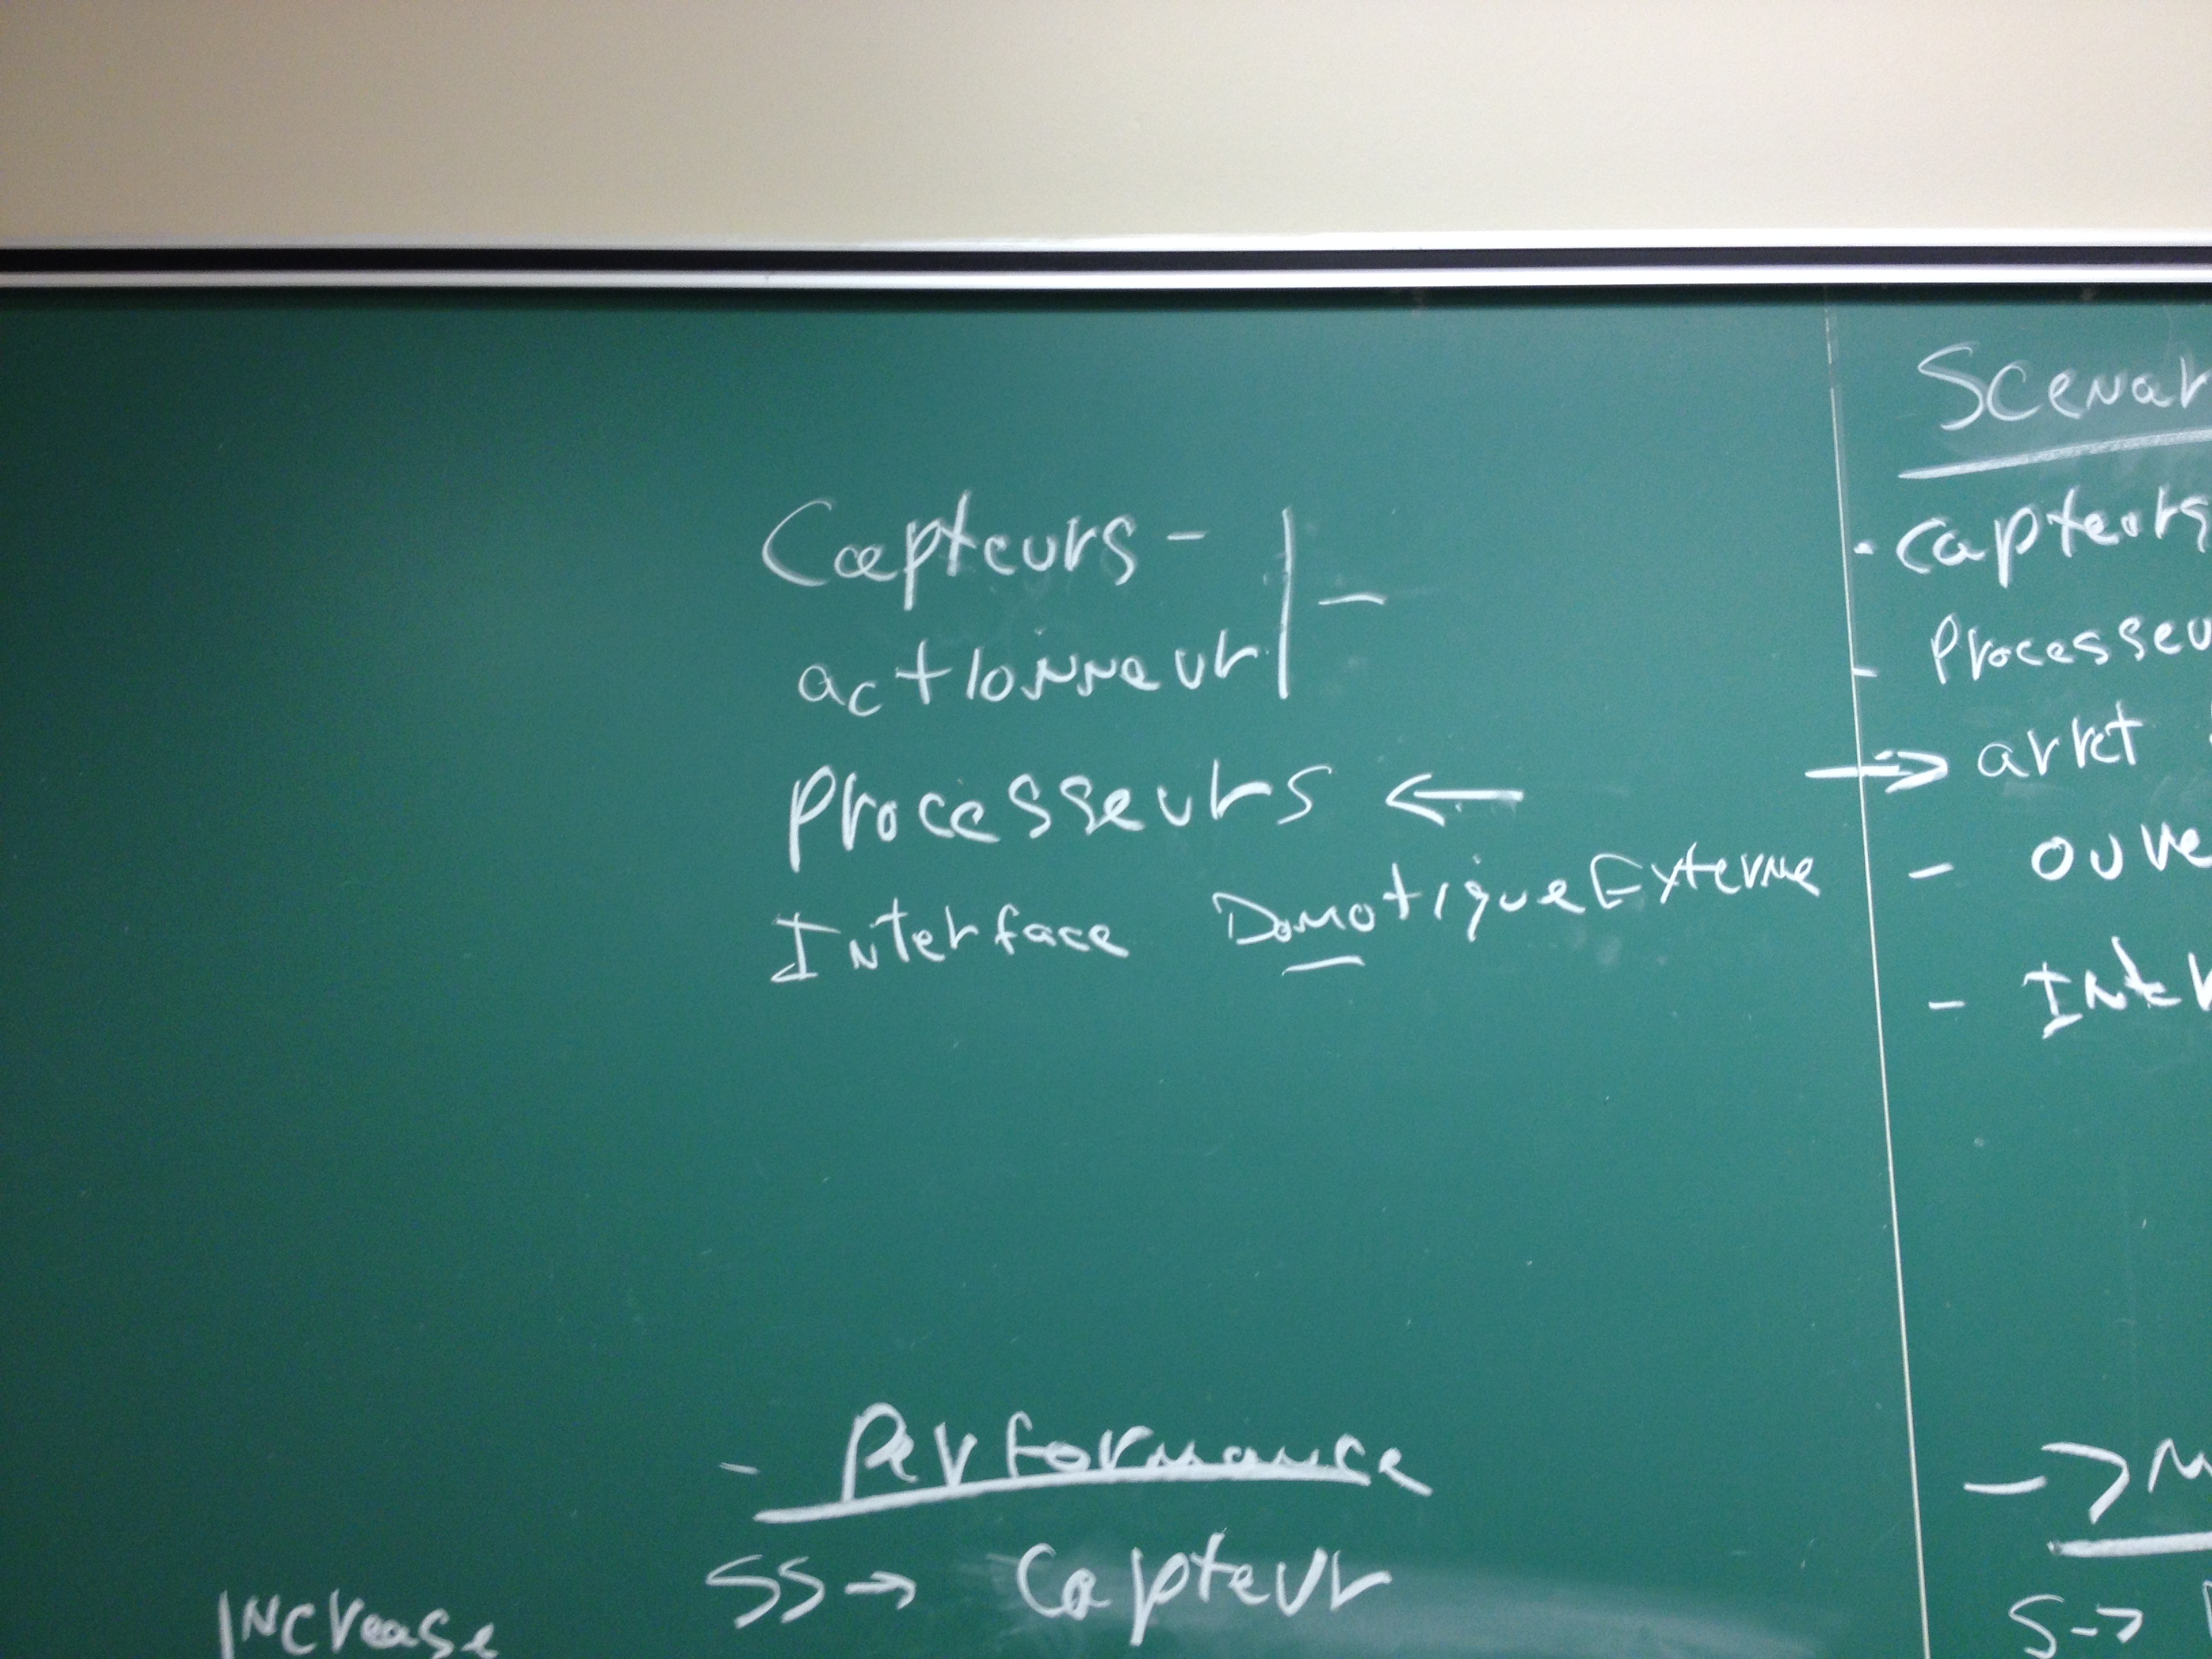 Capteurs -
actionneur -
Processeurs ←
Interface Domotique Externe
- Performance
SS → Capteur
Increase
Scenar
· Capteurs
- Processeu
→ arret
- ouve
- Inter
→
S →